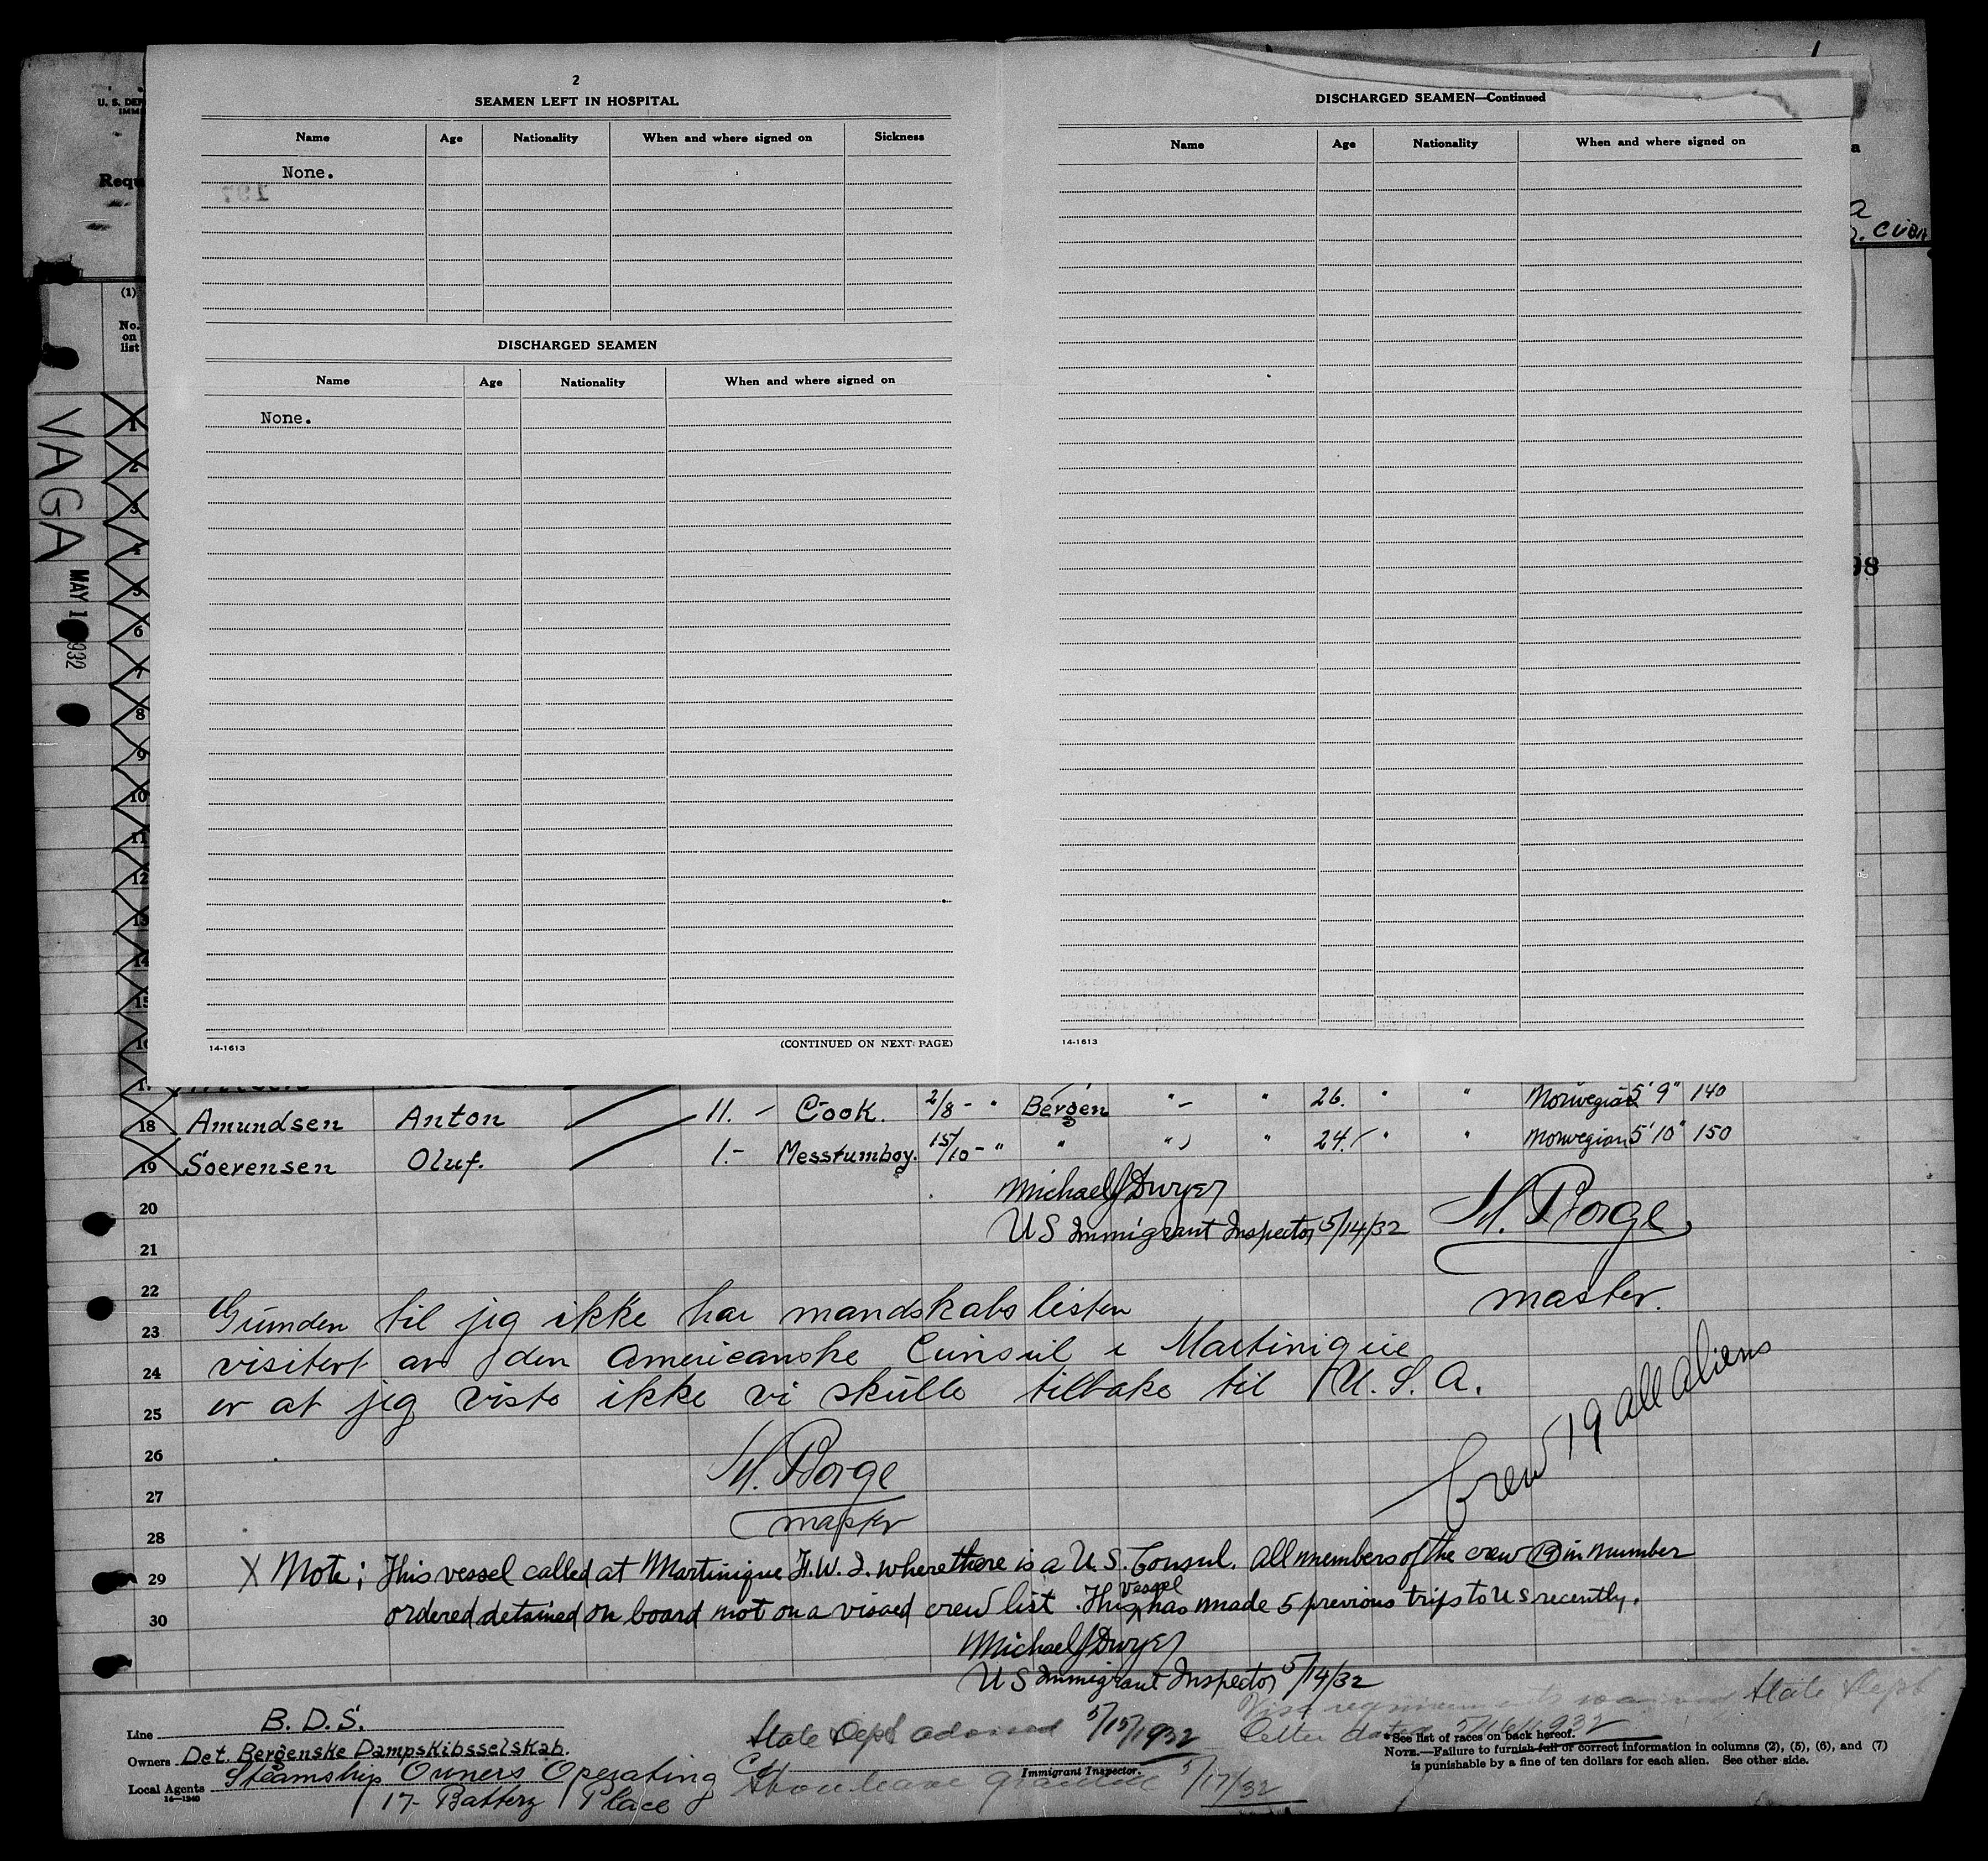 2
SEAMEN LEFT IN HOSPITAL
Name Age Nationality When and where signed on Sickness
None.
DISCHARGED SEAMEN
Name Age Nationality When and where signed on
None.
14-1613 (CONTINUED ON NEXT PAGE)
DISCHARGED SEAMEN—Continued
Name Age Nationality When and where signed on
14-1613
U. S. DEP
IMM
Requ
a
CUBA
98
(1)
No.
on
list
VAGA
MAY 1 1932
1
2
3
4
5
6
7
8
9
10
11
12
13
14
15
16
17
18 Amundsen Anton 11. - Cook. 2/8 - " Bergen "- " 26. " " Norwegian 5' 9" 140
19 Soerensen Oluf. 1.- Messrumboy. 15/10 - " " ") " 24. " " Norwegian 5' 10" 150
20
21
22
23
24
25
26
27
28
29
30
Michael J Dwyer
US Immigrant Inspector 5/14/32
M. Borge
master.
Grunden til jeg ikke har mandskabslisten
visitert av den Americanske Cunsul i Martinique
er at jeg viste ikke vi skulle tilbake til U. S. A.
M. Borge
master
Crew 19 all aliens
X Note; This vessel called at Martinique F. W. I. where there is a U. S. Consul. All members of the crew (19) in number
ordered detained on board not on a visaed crew list. This vessel has made 5 previous trips to US recently.
Michael J Dwyer
US Immigrant Inspector 5/14/32
Visa requirements waived State Dept
letter dated 5/16/1932
State Dept advised 5/15/1932
Shore leave granted 5/17/32
Line B. D. S.
Owners Det. Bergenske Dampskibsselskab.
Local Agents Steamship Owners Operating Co
17- Battery Place
14—1240
Immigrant Inspector.
*See list of races on back hereof.
NOTE.—Failure to furnish full or correct information in columns (2), (5), (6), and (7)
is punishable by a fine of ten dollars for each alien. See other side.